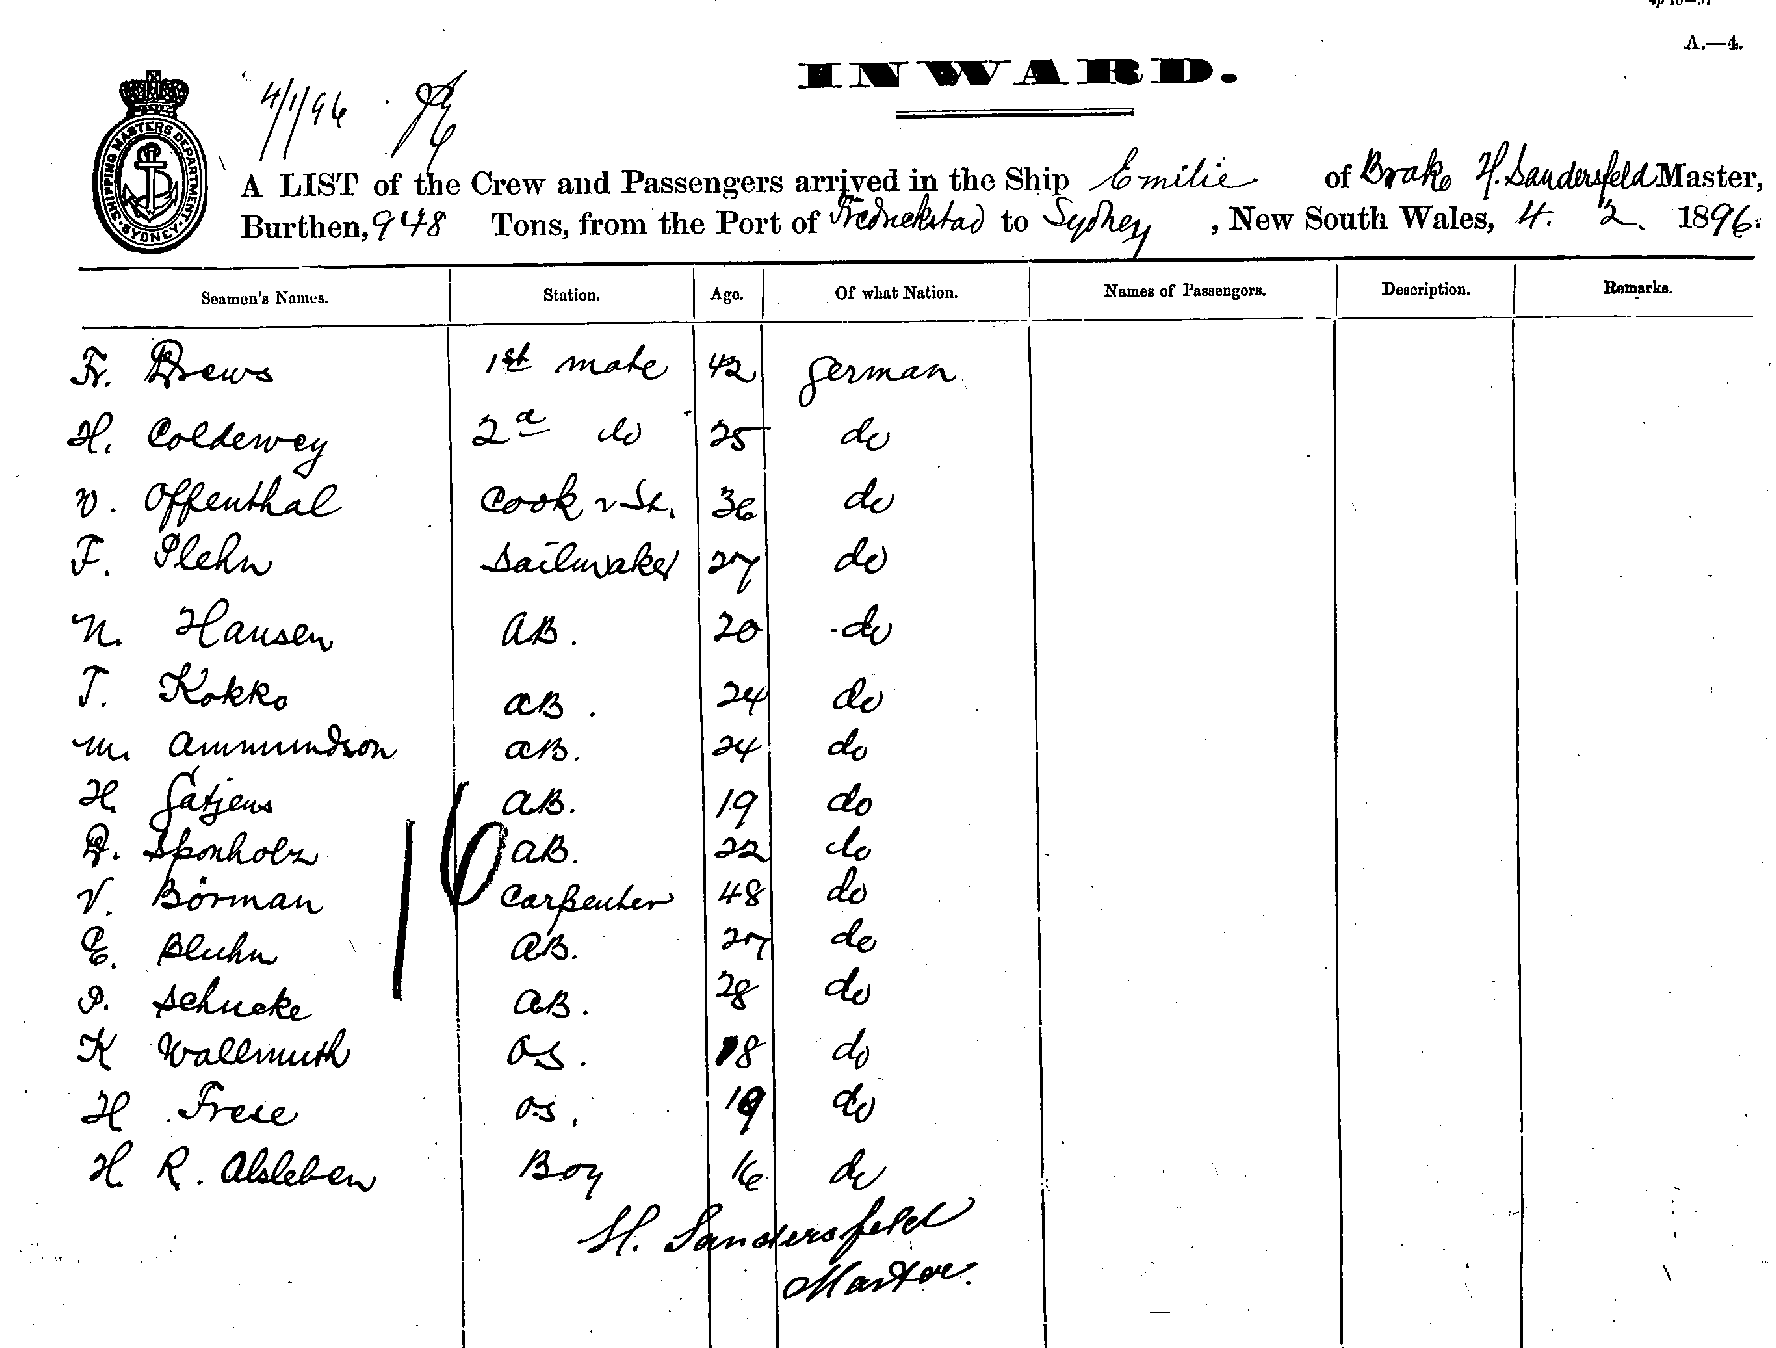 A.—4.
INWARD.
4/1/96
SHIPPING MASTERS DEPARTMENT SYDNEY
A LIST of the Crew and Passengers arrived in the Ship Emilie of Brake H. Sandersfeld Master,
Burthen, 948 Tons, from the Port of Fredrickstad to Sydney, New South Wales, 4. 2. 1896.
Seamen's Names. Station. Age. Of what Nation. Names of Passengers. Description. Remarks.
Fr. Drews 1st mate 42 german
H. Coldewey 2d do 25 do
W. Offenthal Cook & St. 36 do
F. Plehn Sailmaker 27 do
N. Hansen AB. 20 do
T. Kokko AB. 24 do
M. Ammundson AB. 24 do
H. Gätjens AB. 19 do
Sponholz AB. 22 do
V. Börman Carpenter 48 do
E. Bluhn AB. 27 do
P. Schucke AB. 28 do
16
K Wallmuth OS. 18 do
H. Frese OS. 19 do
H. R. Alsleben Boy 16 do
H. Sandersfeld
Master.